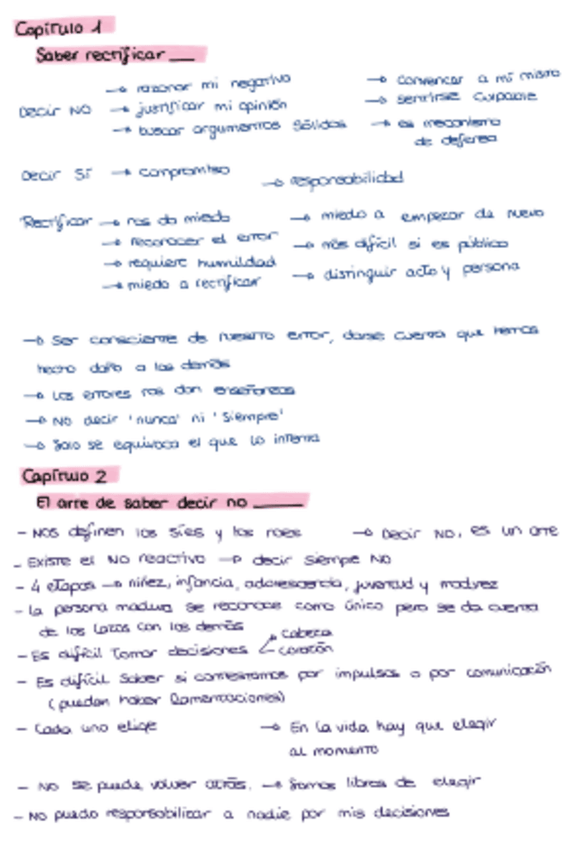 Capítulo 1
Saber rectificar
→ razonar mi negativa → convencer a mí mismo
Decir NO → justificar mi opinión → sentirse culpable
→ buscar argumentos sólidos → es mecanismo
de defensa
Decir SÍ → compromiso → responsabilidad
Rectificar → nos da miedo → miedo a empezar de nuevo
→ reconocer el error → más difícil si es público
→ requiere humildad → distinguir acto y persona
→ miedo a rectificar
→ Ser consciente de nuestro error, darse cuenta que hemos
hecho daño a los demás
→ Los errores nos dan enseñanzas
→ NO decir 'nunca' ni 'siempre'
→ Solo se equivoca el que lo intenta
Capítulo 2
El arte de saber decir no
- NOS definen los síes y los noes → Decir NO, es un arte
- EXISTE el NO reactivo → decir siempre NO
- 4 etapas → niñez, infancia, adolescencia, juventud y madurez
- La persona madura se reconoce como único pero se da cuenta
de los lazos con los demás
- Es difícil tomar decisiones cabeza
corazón
- Es difícil saber si contestamos por impulsos o por comunicación
(pueden haber lamentaciones)
- Cada uno elige → En la vida hay que elegir
al momento
- NO se puede volver atrás. → Somos libres de elegir
- NO puedo responsabilizar a nadie por mis decisiones